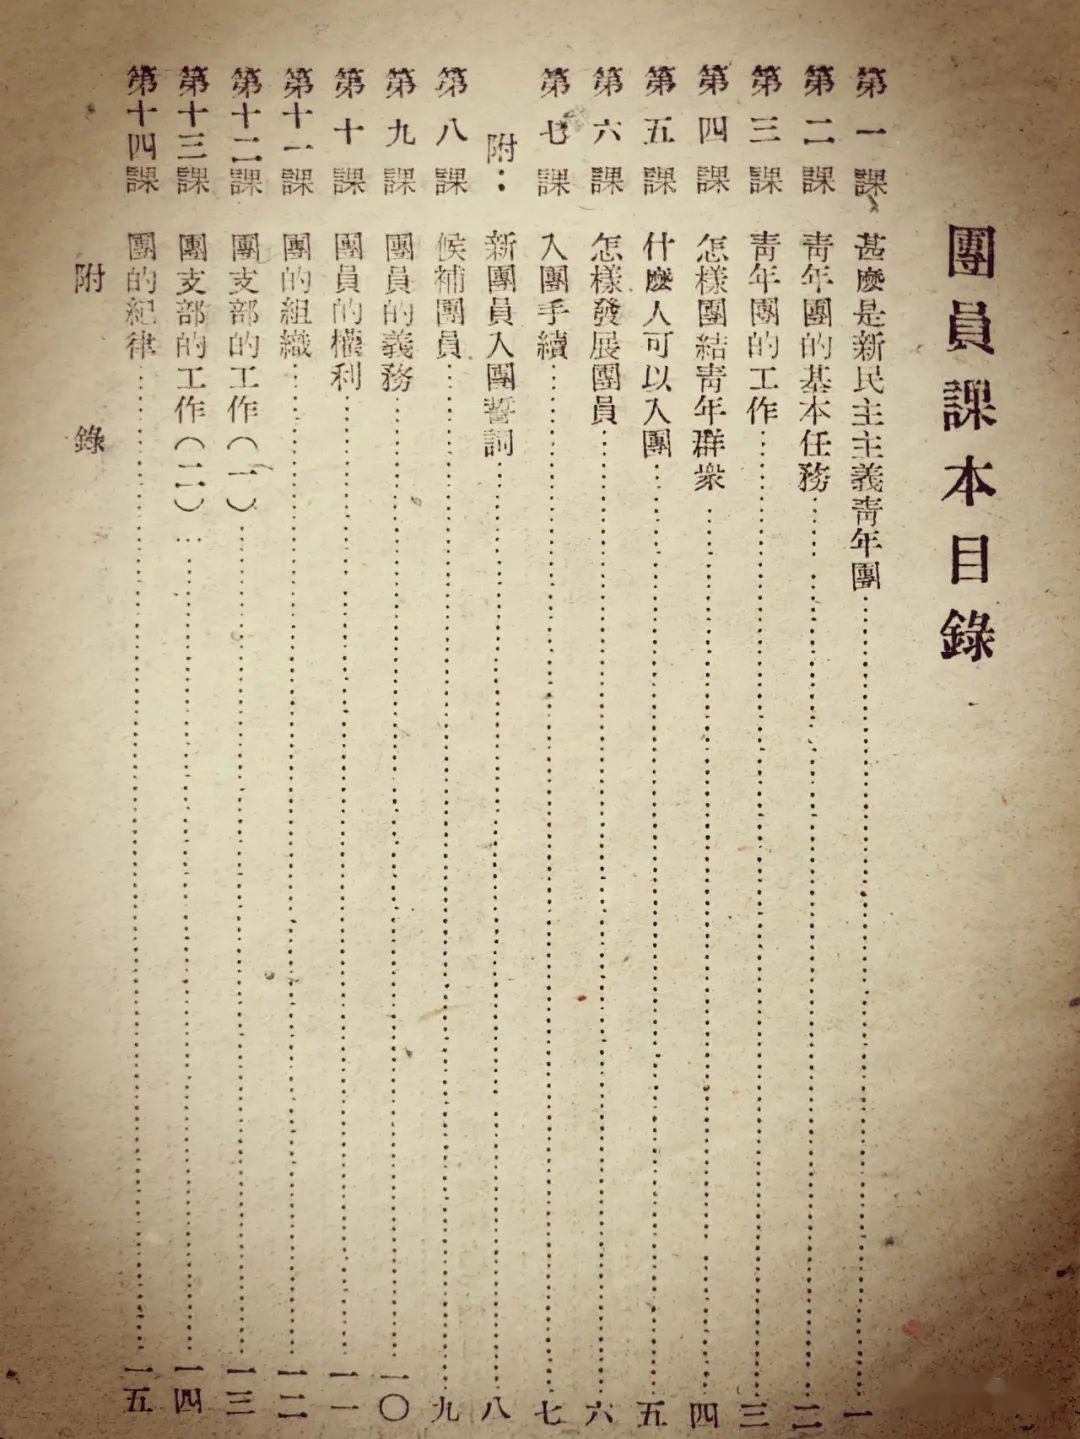 團員課本目錄
第一課 甚麽是新民主主義靑年團……一
第二課 靑年團的基本任務……二
第三課 靑年團的工作……三
第四課 怎樣團結靑年群衆……四
第五課 什麽人可以入團……五
第六課 怎樣發展團員……六
第七課 入團手續……七
附：新團員入團誓詞……八
第八課 候補團員……九
第九課 團員的義務……一〇
第十課 團員的權利……一一
第十一課 團的組織……一二
第十二課 團支部的工作（一）……一三
第十三課 團支部的工作（二）……一四
第十四課 團的紀律……一五
附錄